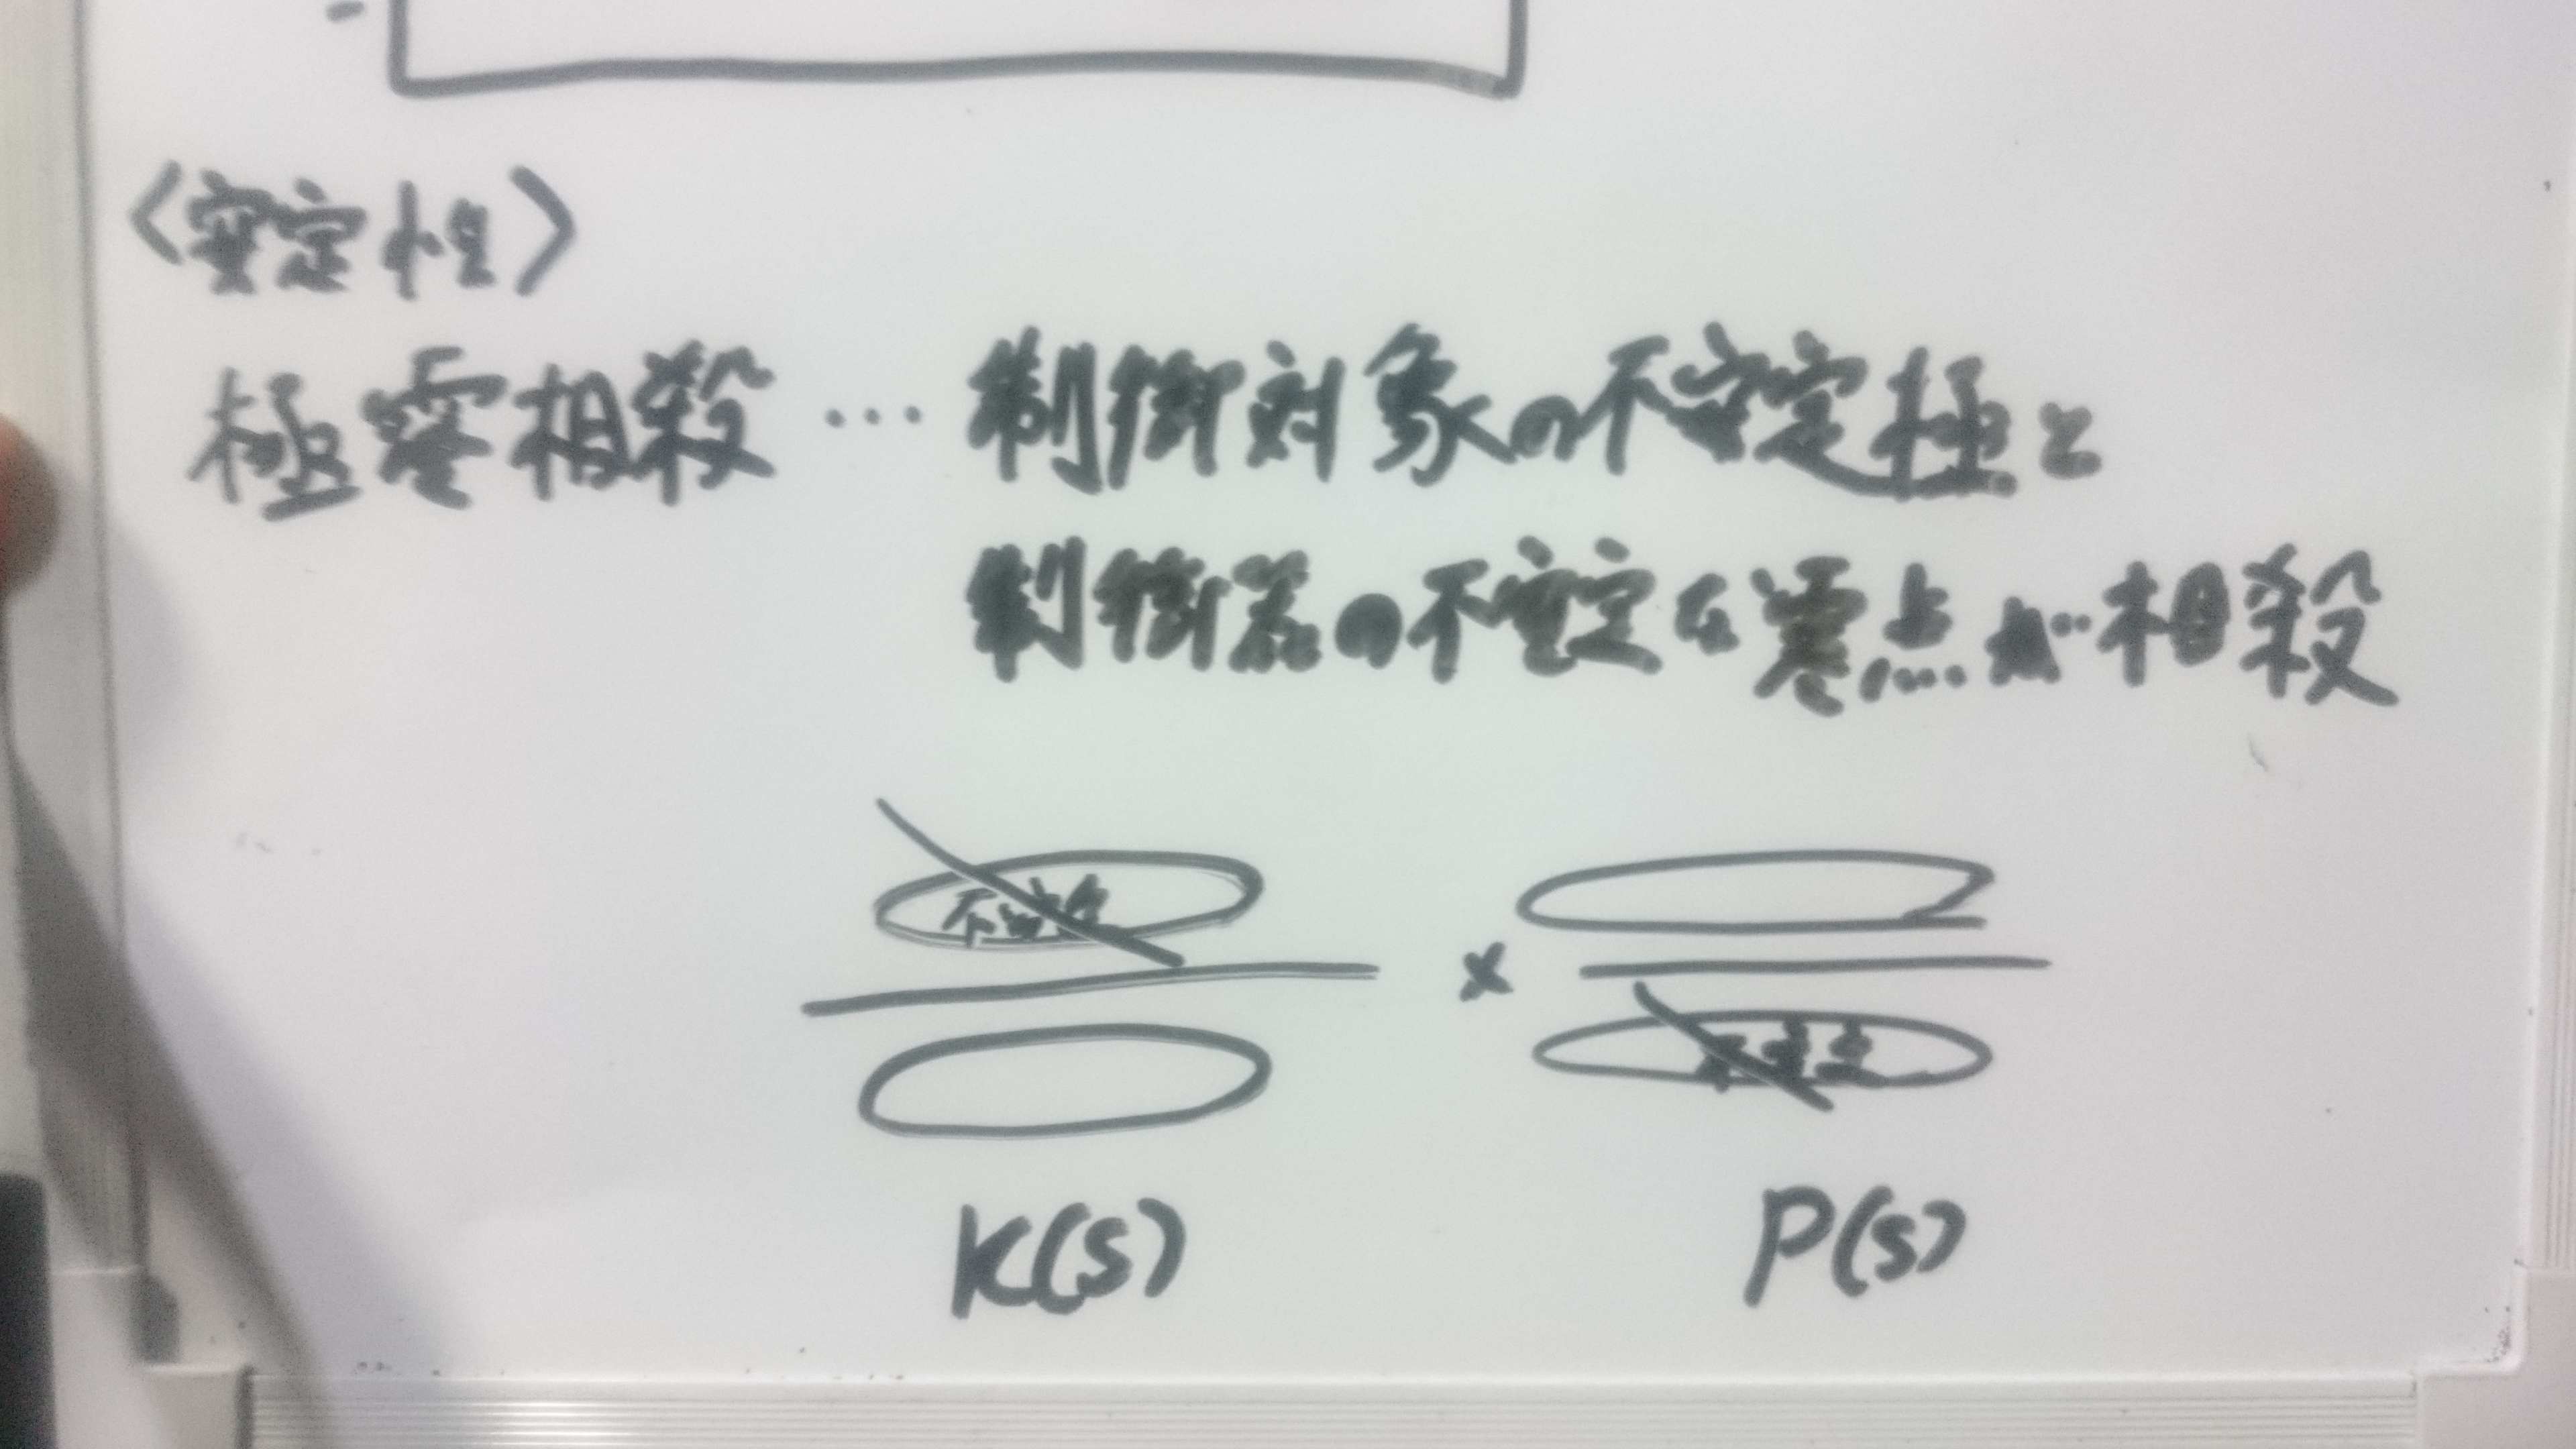 〈安定性〉
極零相殺 … 制御対象の不安定極と
制御器の不安定な零点が相殺
不安定
×
不安定
K(s)
P(s)